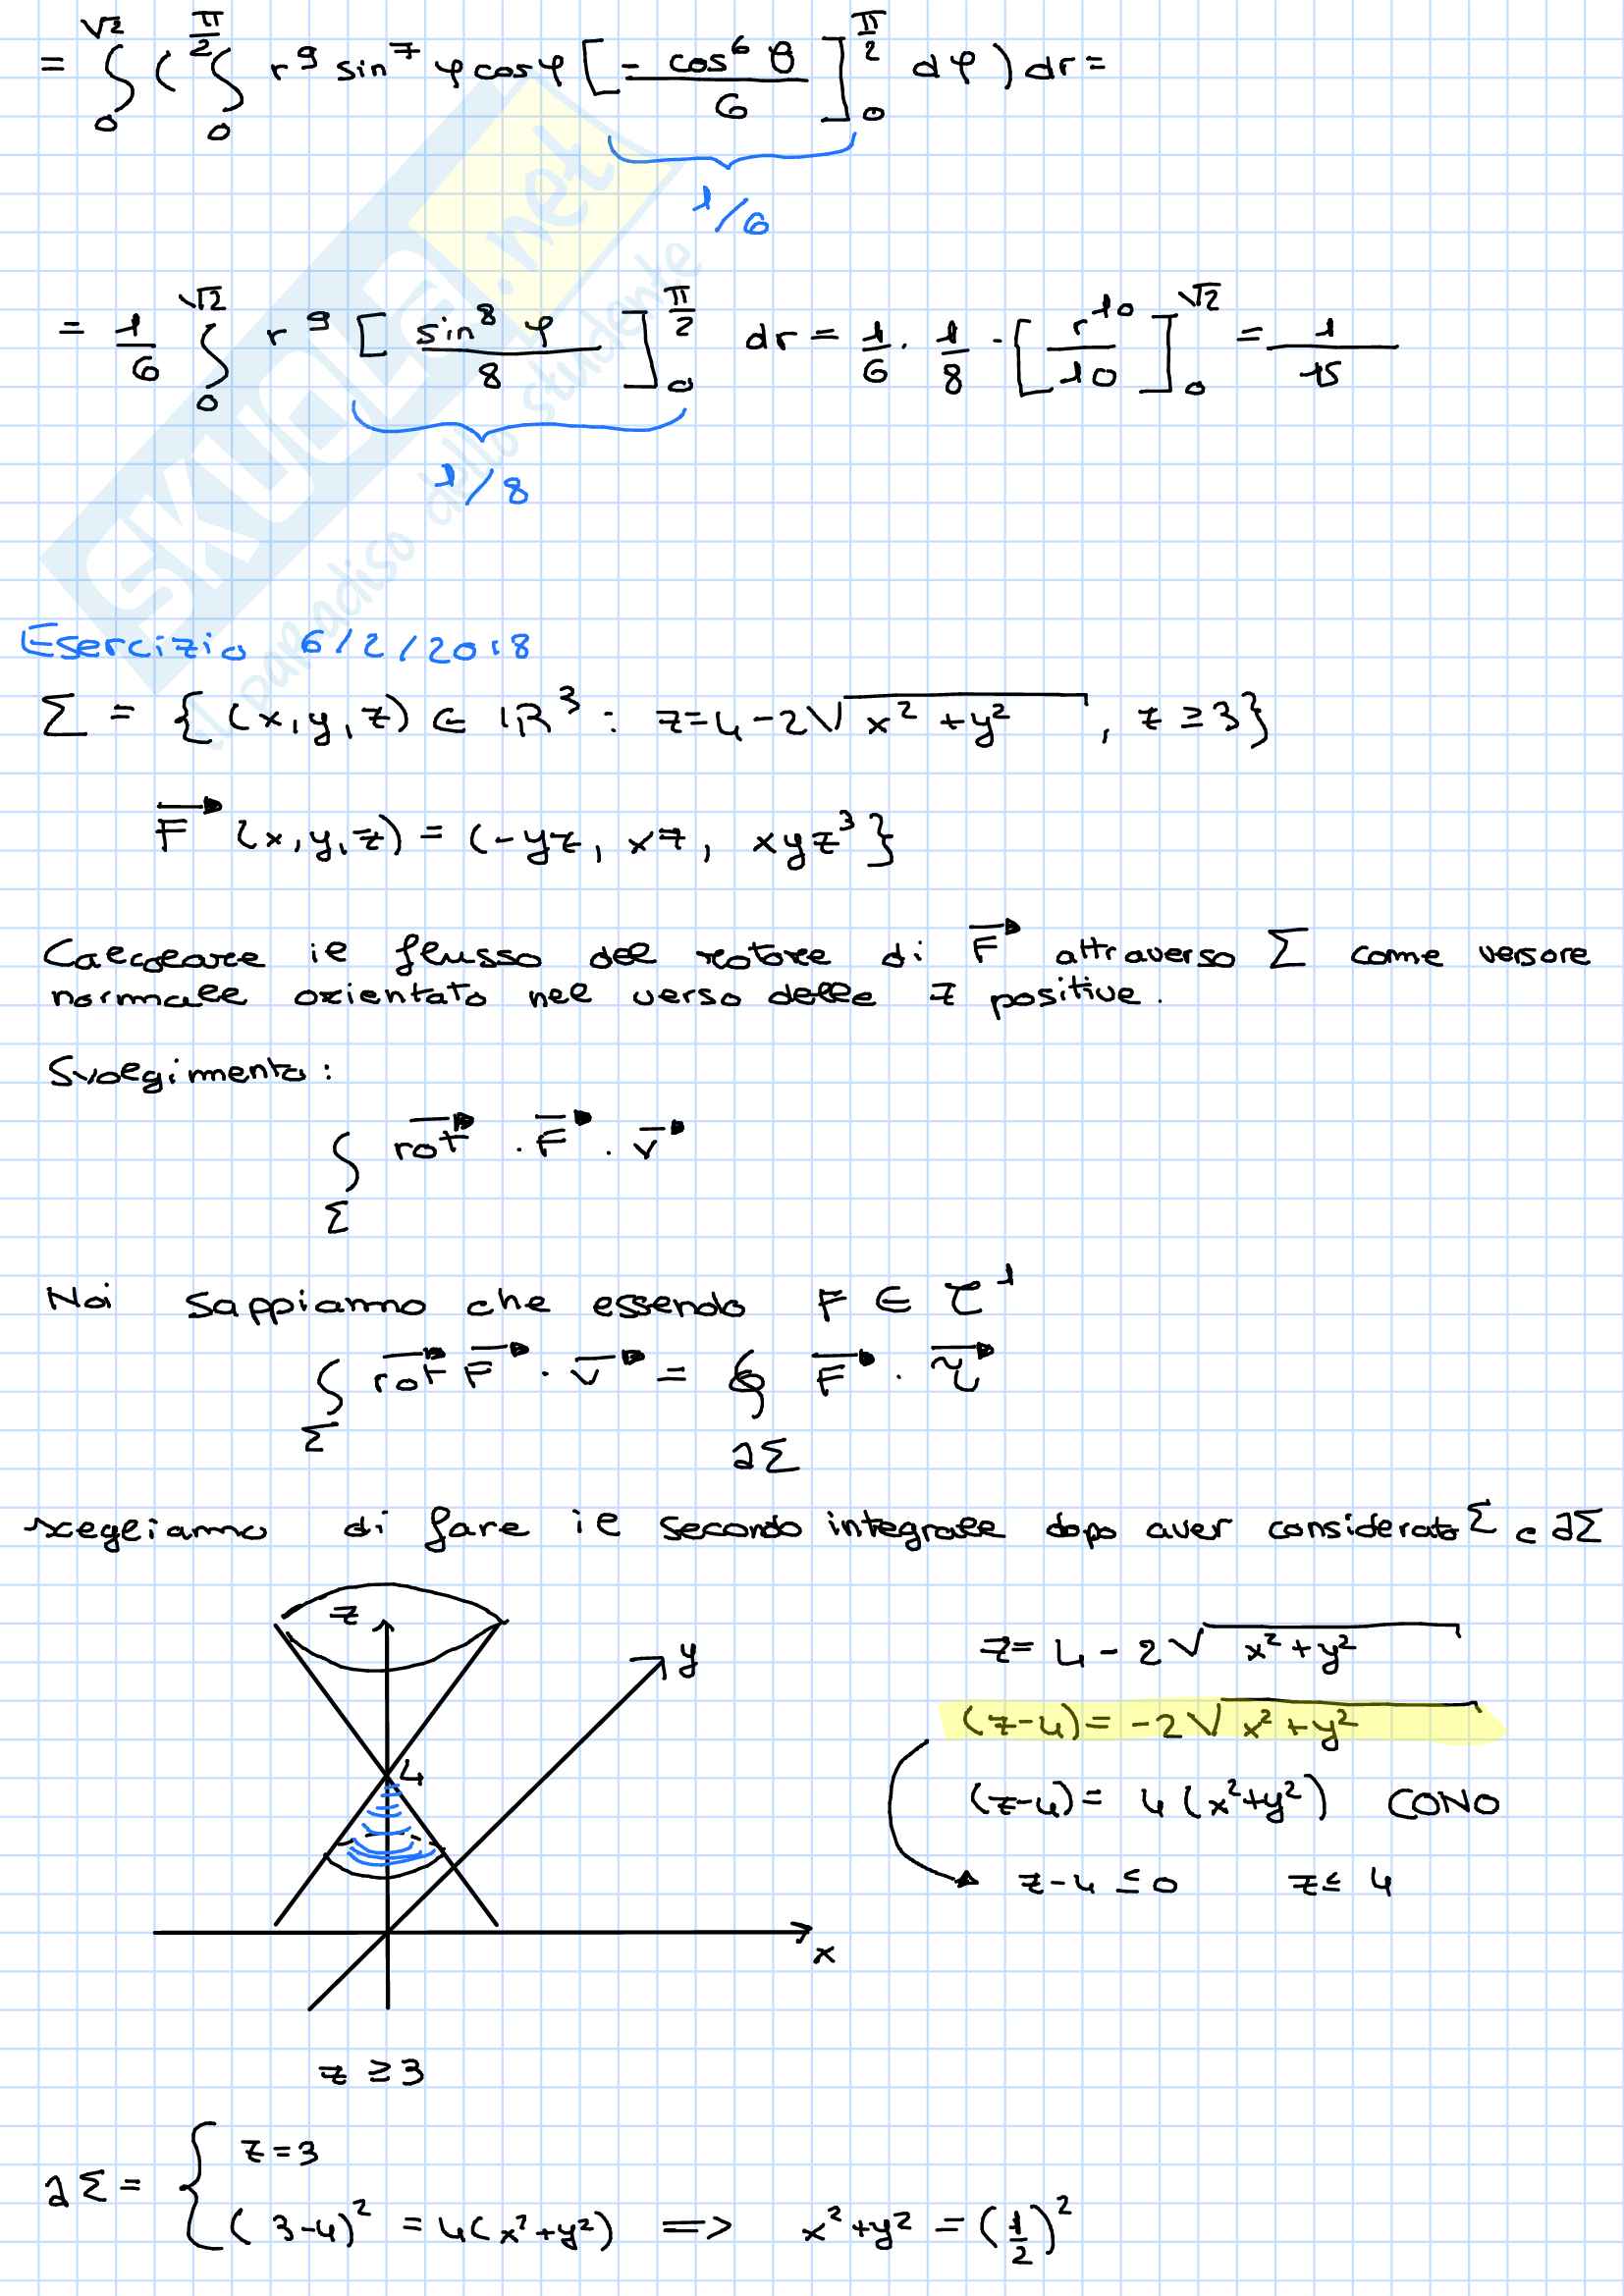 = ∫₀^√2 ( ∫₀^π/2 r⁹ sin⁷ φ cos φ [ - cos⁶ θ / 6 ]₀^π/2 dφ ) dr =
1/6
= 1/6 ∫₀^√2 r⁹ [ sin⁸ φ / 8 ]₀^π/2 dr = 1/6 · 1/8 · [ r¹⁰ / 10 ]₀^√2 = 1/15
1/8
SKUOLA.net
il paradiso dello studente
Esercizio 6/2/2018
Σ = { (x,y,z) ∈ ℝ³ : z=4-2√(x² +y²) , z ≥ 3}
F⃗ (x,y,z) = (-yz, xz, xyz³ }
Calcolare il flusso del rotore di F⃗ attraverso Σ come versore
normale orientato nel verso delle z positive.
Svolgimento:
∫_Σ rot⃗ · F⃗ · v⃗
Noi sappiamo che essendo F ∈ C¹
∫_Σ rot⃗ F⃗ · v⃗ = ∮_∂Σ F⃗ · τ⃗
scegliamo di fare il secondo integrale dopo aver considerato Σ e ∂Σ
z
y
4
x
z ≥ 3
z= 4 - 2√(x²+y²)
(z-4)= -2√(x²+y²)
(z-4)= 4 (x²+y²) CONO
z-4 ≤ 0 z ≤ 4
∂Σ = { z=3
(3-4)² = 4(x²+y²) => x²+y² = (1/2)²